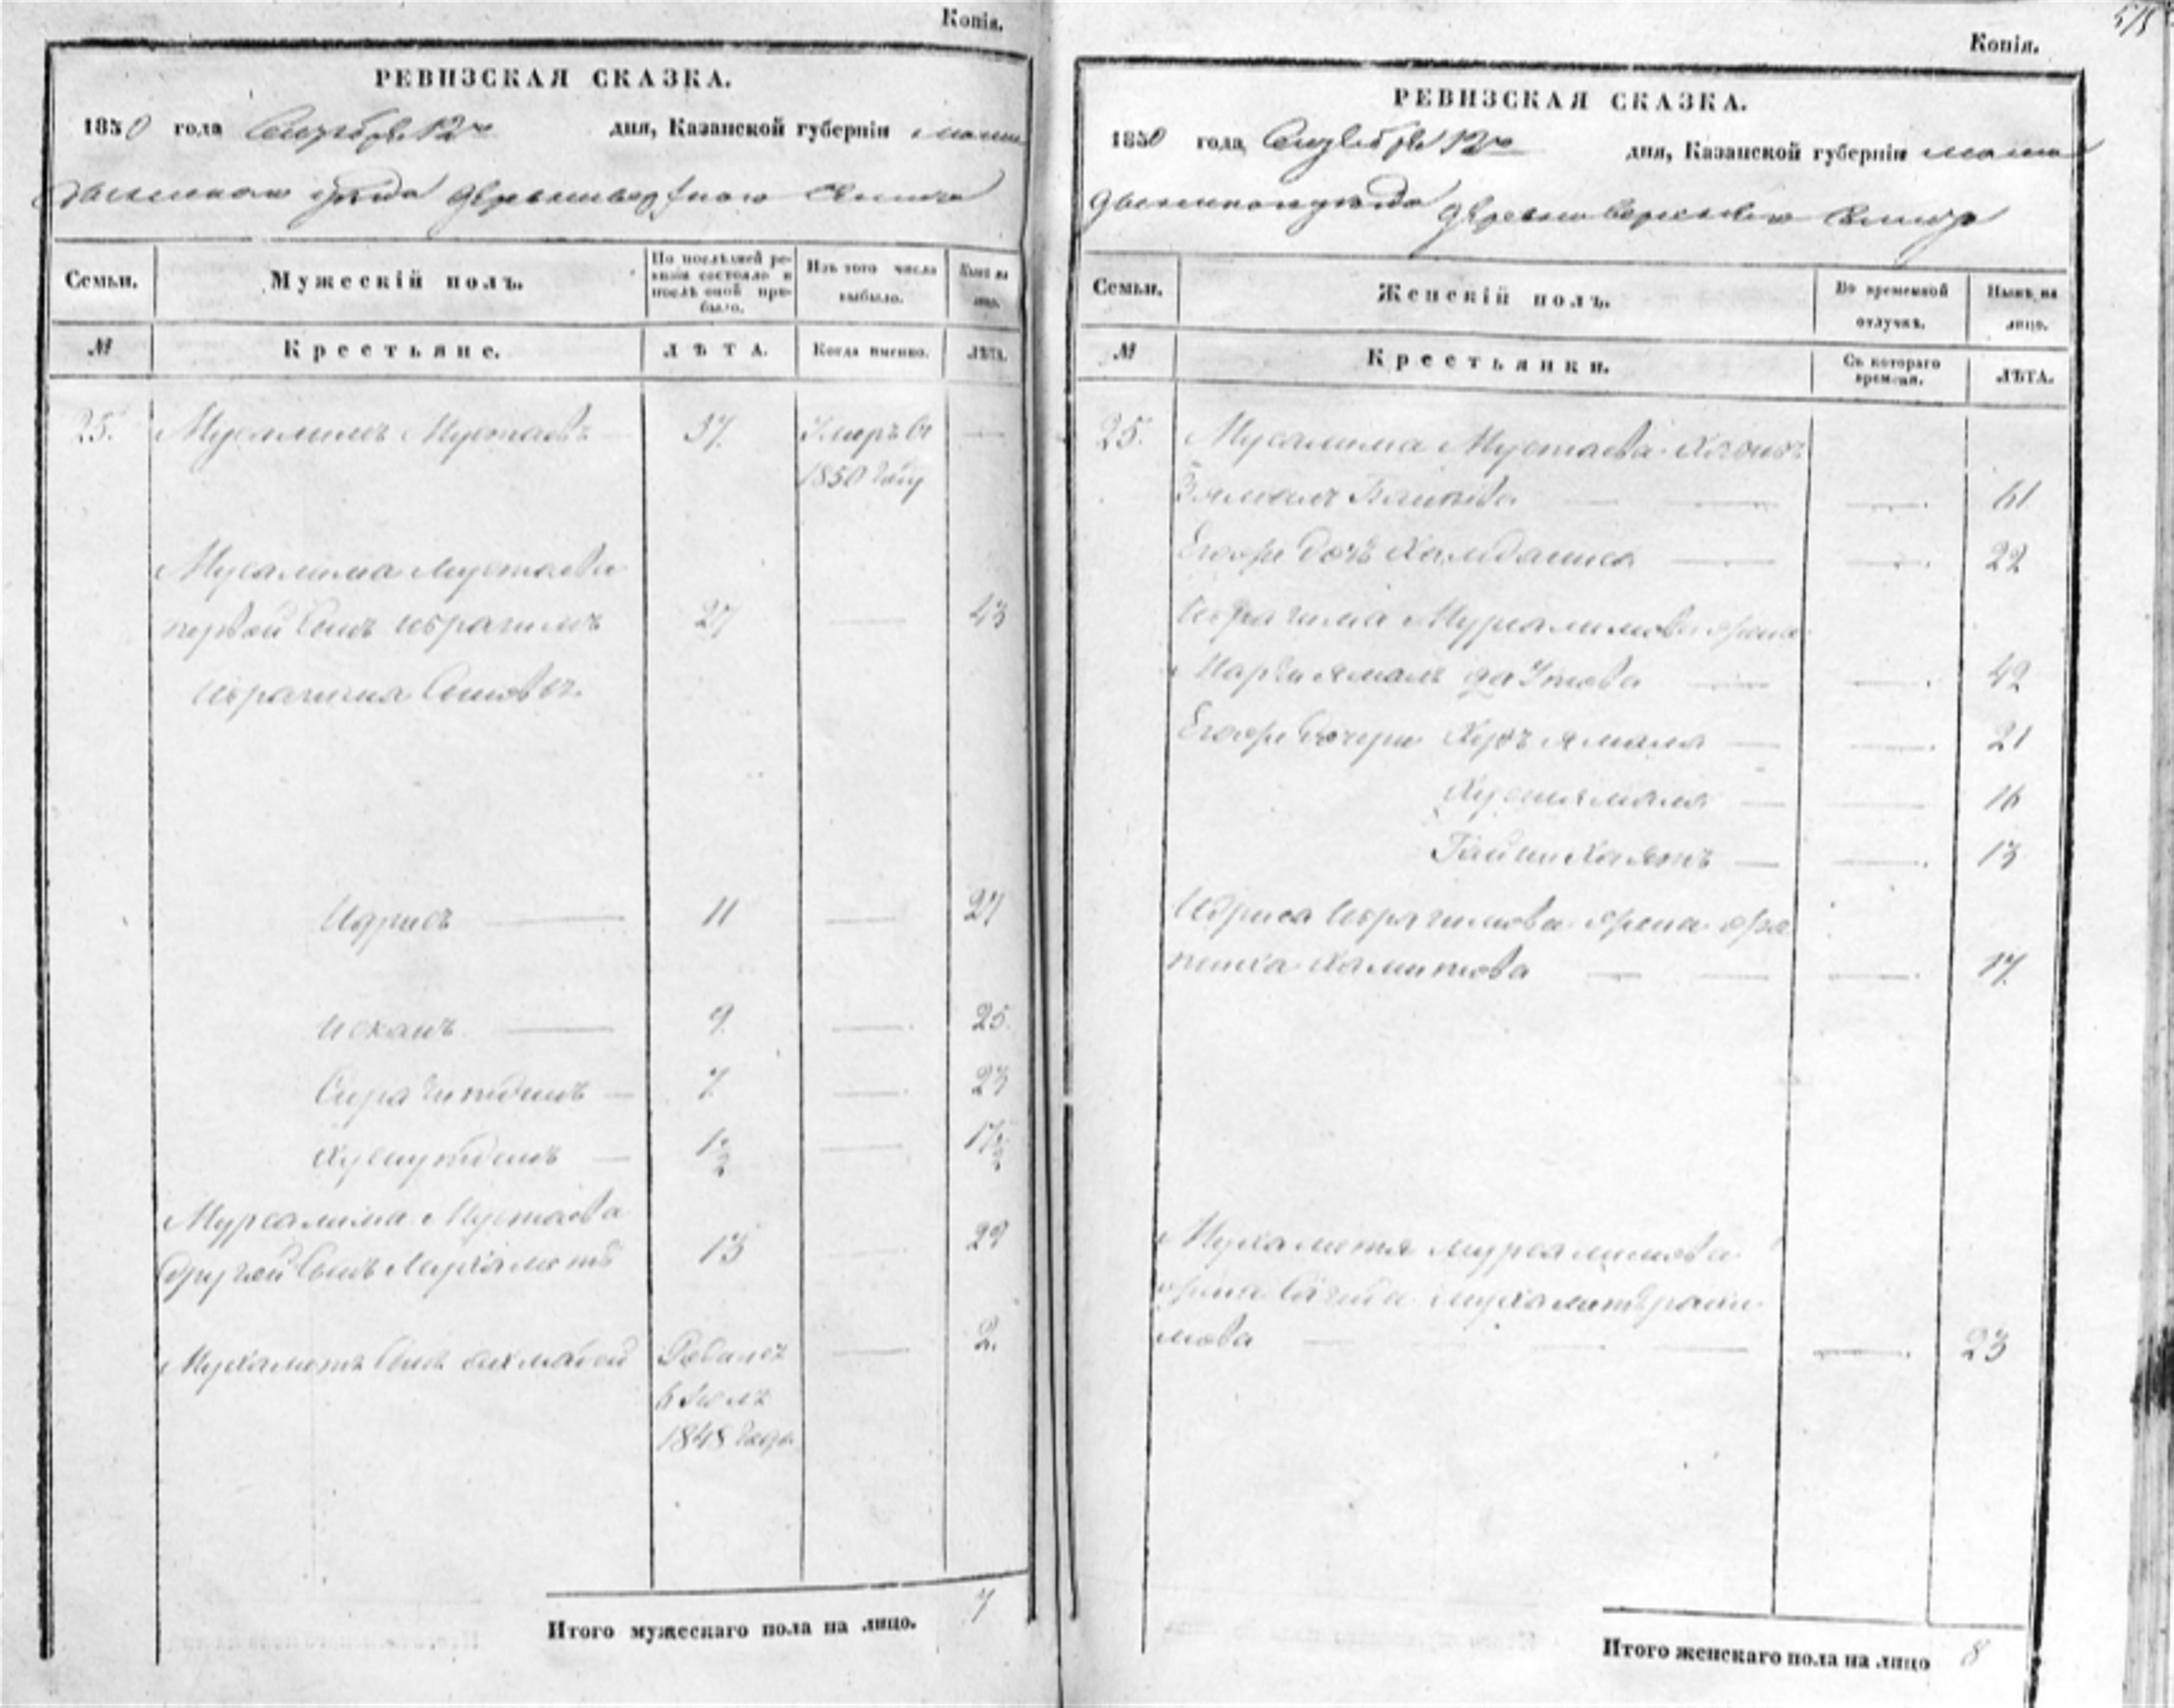 Копія.
РЕВИЗСКАЯ СКАЗКА.
1850 года Сентября 12го дня, Казанской губерніи мама
дышскаго уѣзда деревни
Семьи.
Мужескій полъ.
По послѣдней ре-
визіи состояло и
послѣ оной при-
было.
Изъ того числа
выбыло.
Нынѣ на
лицо.
№
Крестьяне.
ЛѢТА.
Когда именно.
ЛѢТА.
25. Мусалимъ Мустаевъ 37. Умръ въ —
1850 году
Мусалима Мустаева
первой сынъ Ибрагимъ 27 — 43
Ибрагима Сыновья
Идрисъ — 11 — 27
Исхакъ — 9. — 25.
Сирачитдинъ — 7. — 23
Хуснутдинъ — 1/2 — 17 1/2
Мурсалима Мустаева
другой сынъ Мухаметъ 13 — 29
Мухаметя сынъ Ахмадей — 2.
1848 года
Итого мужескаго пола на лицо. 7
515
Копія.
РЕВИЗСКАЯ СКАЗКА.
1850 года Сентября 12го дня, Казанской губерніи мама
дышскаго уѣзда деревни
Семьи.
Женскій полъ.
Во временной
отлучкѣ.
Нынѣ на
лицо.
№
Крестьянки.
Съ котораго
времени.
ЛѢТА.
25. Мусалима Мустаева жена
— — 61
Егожъ дочь — — 22
Ибрагима Мурсалимова жена
— — 42
Егожъ дочери — — 21
Хуснямаля — — 16
— — 13
Идриса Ибрагимова жена
Хамитова — — 17.
Мухаметя Мурсалимова
жена Сагида Мухаметърахи
мова — — 23
Итого женскаго пола на лицо 8